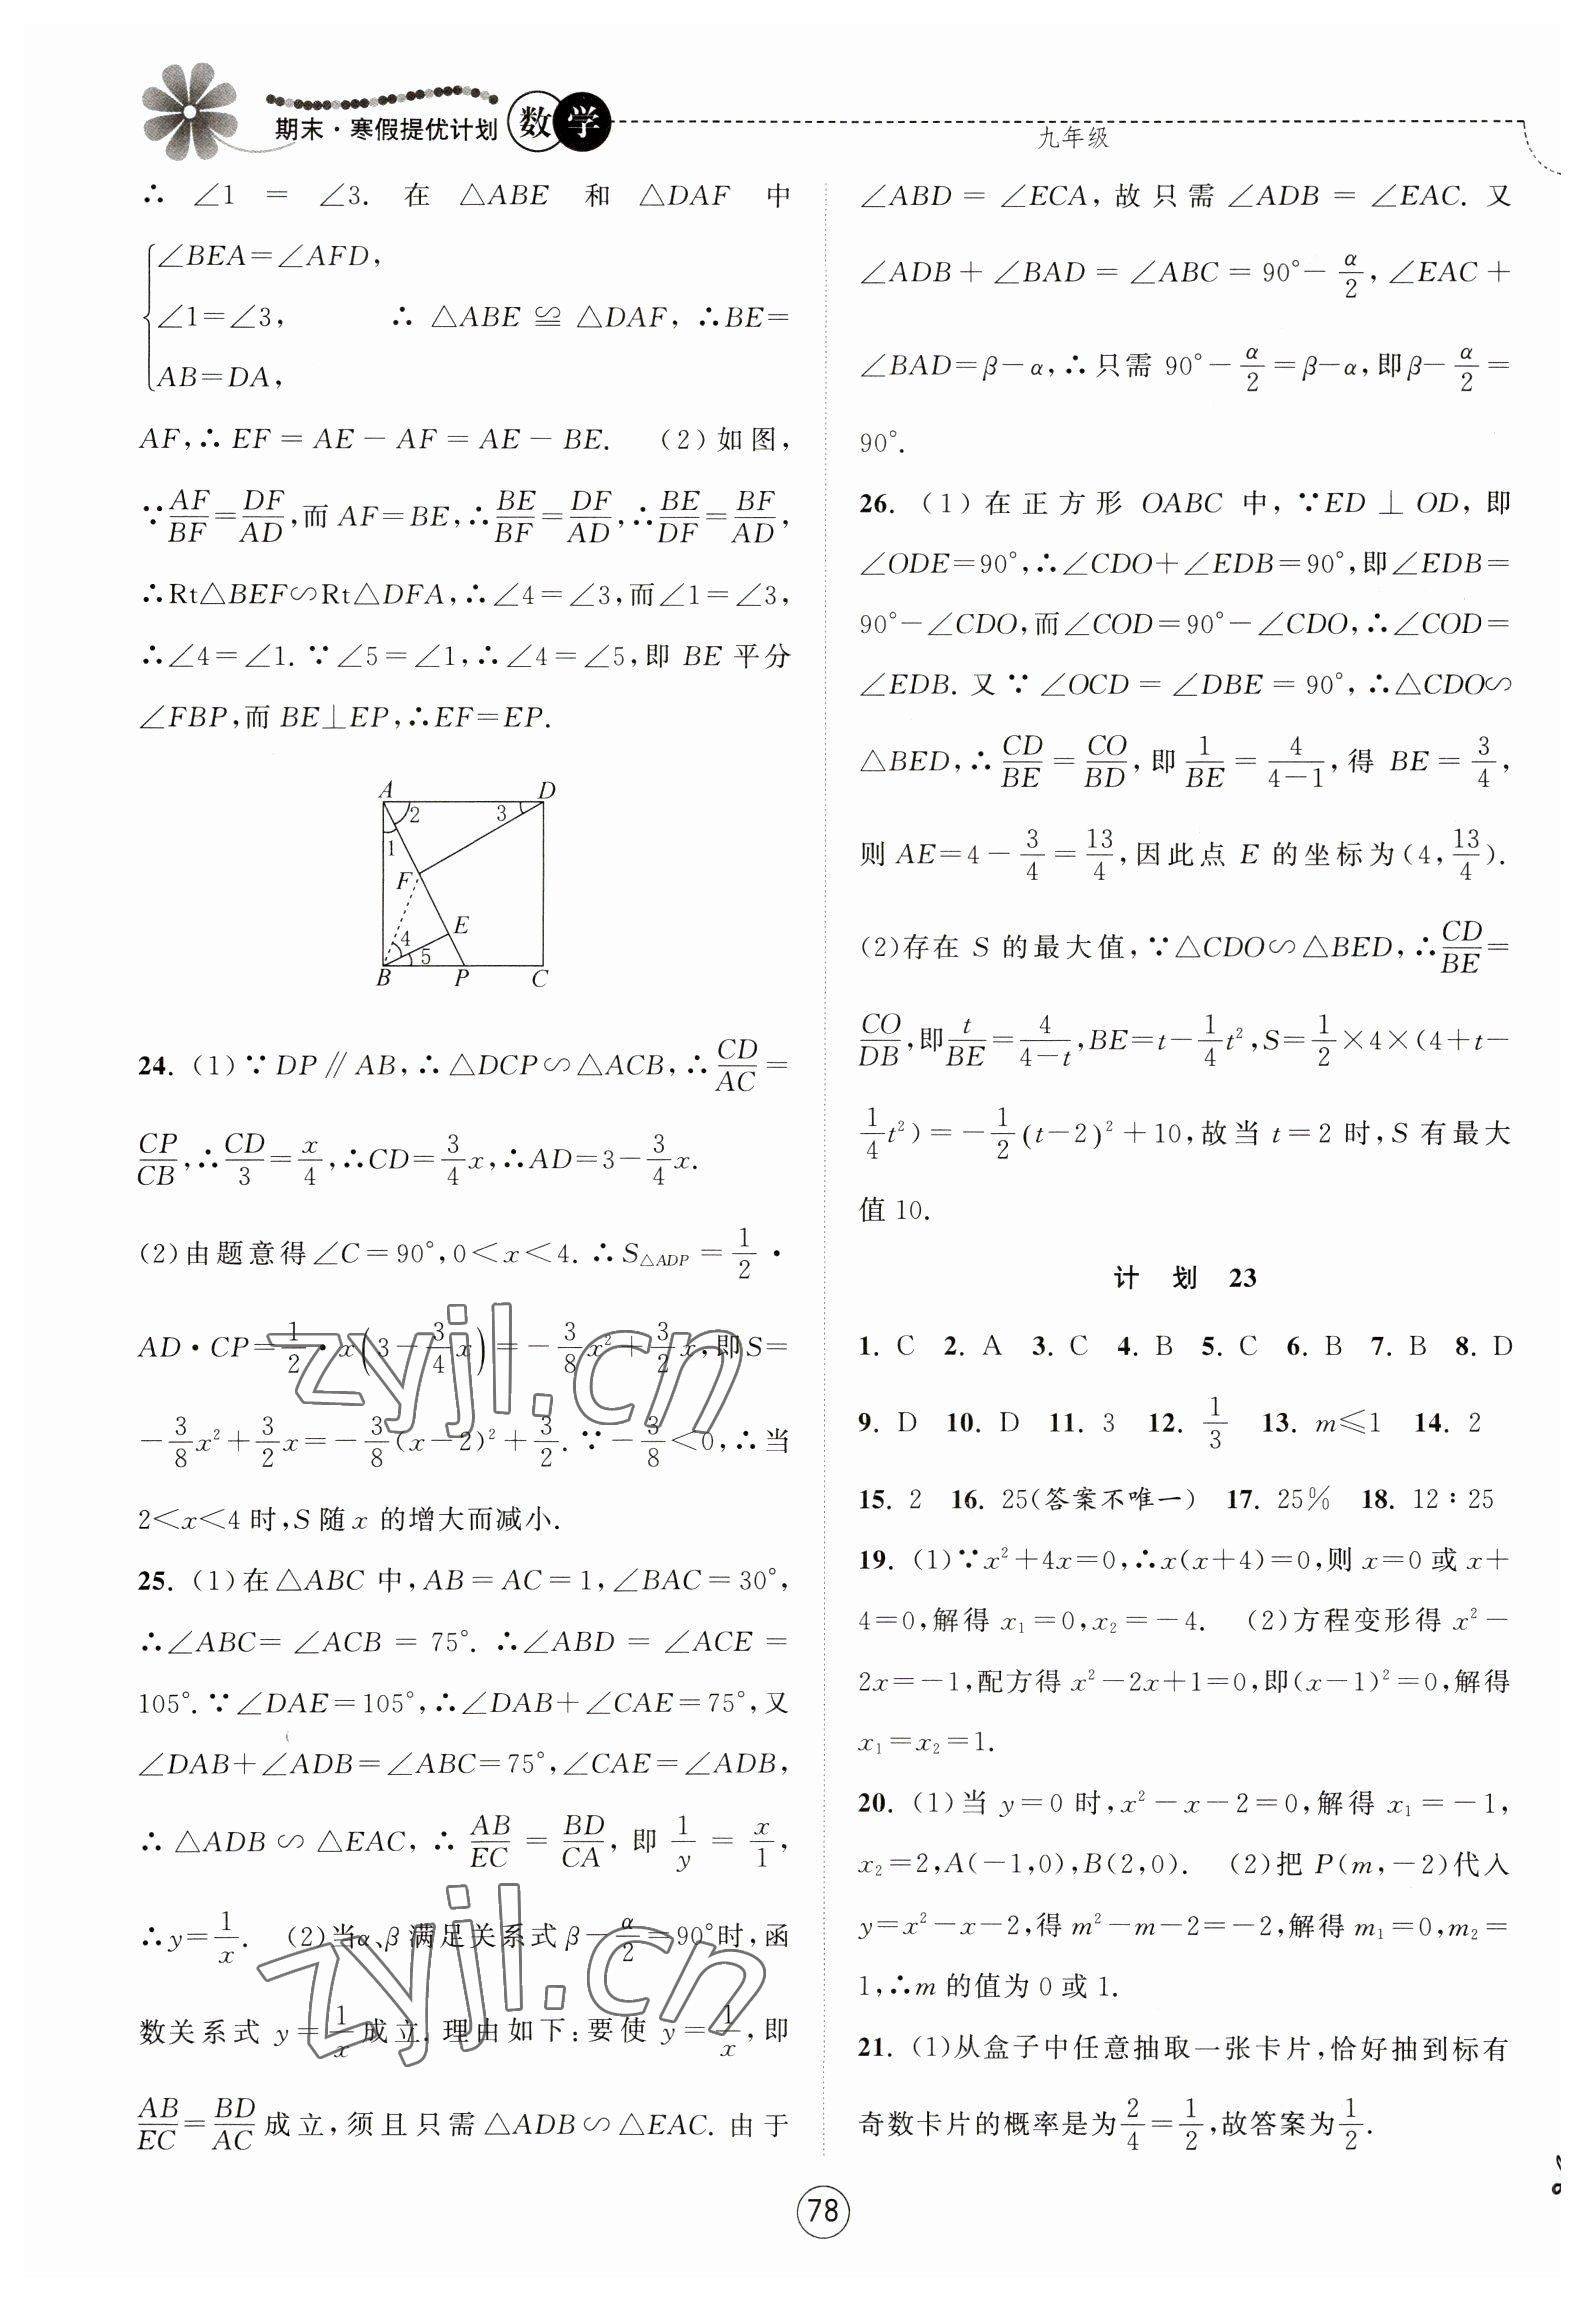 期末·寒假提优计划 数学
九年级
∴ ∠1 = ∠3. 在 △ABE 和 △DAF 中
∠BEA=∠AFD,
∠1=∠3, ∴ △ABE ≌ △DAF, ∴BE=
AB=DA,
AF,∴ EF = AE − AF = AE − BE. (2)如图,
∵AF/BF=DF/AD,而 AF=BE,∴BE/BF=DF/AD,∴BE/DF=BF/AD,
∴Rt△BEF∽Rt△DFA,∴∠4=∠3,而∠1=∠3,
∴∠4=∠1. ∵∠5=∠1,∴∠4=∠5,即 BE 平分
∠FBP,而 BE⊥EP,∴EF=EP.
A
D
2
3
1
F
E
4
5
B
P
C
24. (1)∵DP∥AB,∴△DCP∽△ACB,∴CD/AC=
CP/CB,∴CD/3=x/4,∴CD=3/4x,∴AD=3−3/4x.
(2)由题意得∠C=90°,0<x<4. ∴S△ADP=1/2·
AD·CP=1/2·x(3−3/4x)=−3/8x²+3/2x,即S=
−3/8x²+3/2x=−3/8(x−2)²+3/2. ∵−3/8<0,∴当
2<x<4 时,S 随 x 的增大而减小.
25. (1)在△ABC 中,AB=AC=1,∠BAC=30°,
∴∠ABC= ∠ACB = 75°. ∴∠ABD = ∠ACE =
105°. ∵∠DAE=105°,∴∠DAB+∠CAE=75°,又
∠DAB+∠ADB=∠ABC=75°,∠CAE=∠ADB,
∴ △ADB ∽ △EAC, ∴ AB/EC = BD/CA, 即 1/y = x/1,
∴y=1/x. (2)当α、β满足关系式β−α/2=90°时,函
数关系式 y=1/x成立,理由如下:要使 y=1/x,即
AB/EC=BD/AC成立,须且只需△ADB∽△EAC. 由于
∠ABD = ∠ECA,故只需∠ADB = ∠EAC. 又
∠ADB + ∠BAD = ∠ABC = 90°−α/2, ∠EAC +
∠BAD=β−α,∴只需 90°−α/2=β−α,即β−α/2=
90°.
26. (1)在正方形 OABC 中,∵ED⊥OD,即
∠ODE=90°,∴∠CDO+∠EDB=90°,即∠EDB=
90°−∠CDO,而∠COD=90°−∠CDO,∴∠COD=
∠EDB. 又∵∠OCD=∠DBE=90°,∴△CDO∽
△BED,∴CD/BE=CO/BD,即1/BE=4/(4−1),得 BE=3/4,
则 AE=4−3/4=13/4,因此点 E 的坐标为(4,13/4).
(2)存在 S 的最大值,∵△CDO∽△BED,∴CD/BE=
CO/DB,即t/BE=4/(4−t),BE=t−1/4t²,S=1/2×4×(4+t−
1/4t²)=−1/2(t−2)²+10,故当 t=2 时,S 有最大
值 10.
计 划 23
1. C 2. A 3. C 4. B 5. C 6. B 7. B 8. D
9. D 10. D 11. 3 12. 1/3 13. m≤1 14. 2
15. 2 16. 25(答案不唯一) 17. 25% 18. 12∶25
19. (1)∵x²+4x=0,∴x(x+4)=0,则 x=0 或 x+
4=0,解得 x₁=0,x₂=−4. (2)方程变形得 x²−
2x=−1,配方得 x²−2x+1=0,即(x−1)²=0,解得
x₁=x₂=1.
20. (1)当 y=0 时,x²−x−2=0,解得 x₁=−1,
x₂=2,A(−1,0),B(2,0). (2)把 P(m,−2)代入
y=x²−x−2,得 m²−m−2=−2,解得 m₁=0,m₂=
1,∴m 的值为 0 或 1.
21. (1)从盒子中任意抽取一张卡片,恰好抽到标有
奇数卡片的概率是为2/4=1/2,故答案为1/2.
78
zyjl.cn
zyjl.cn